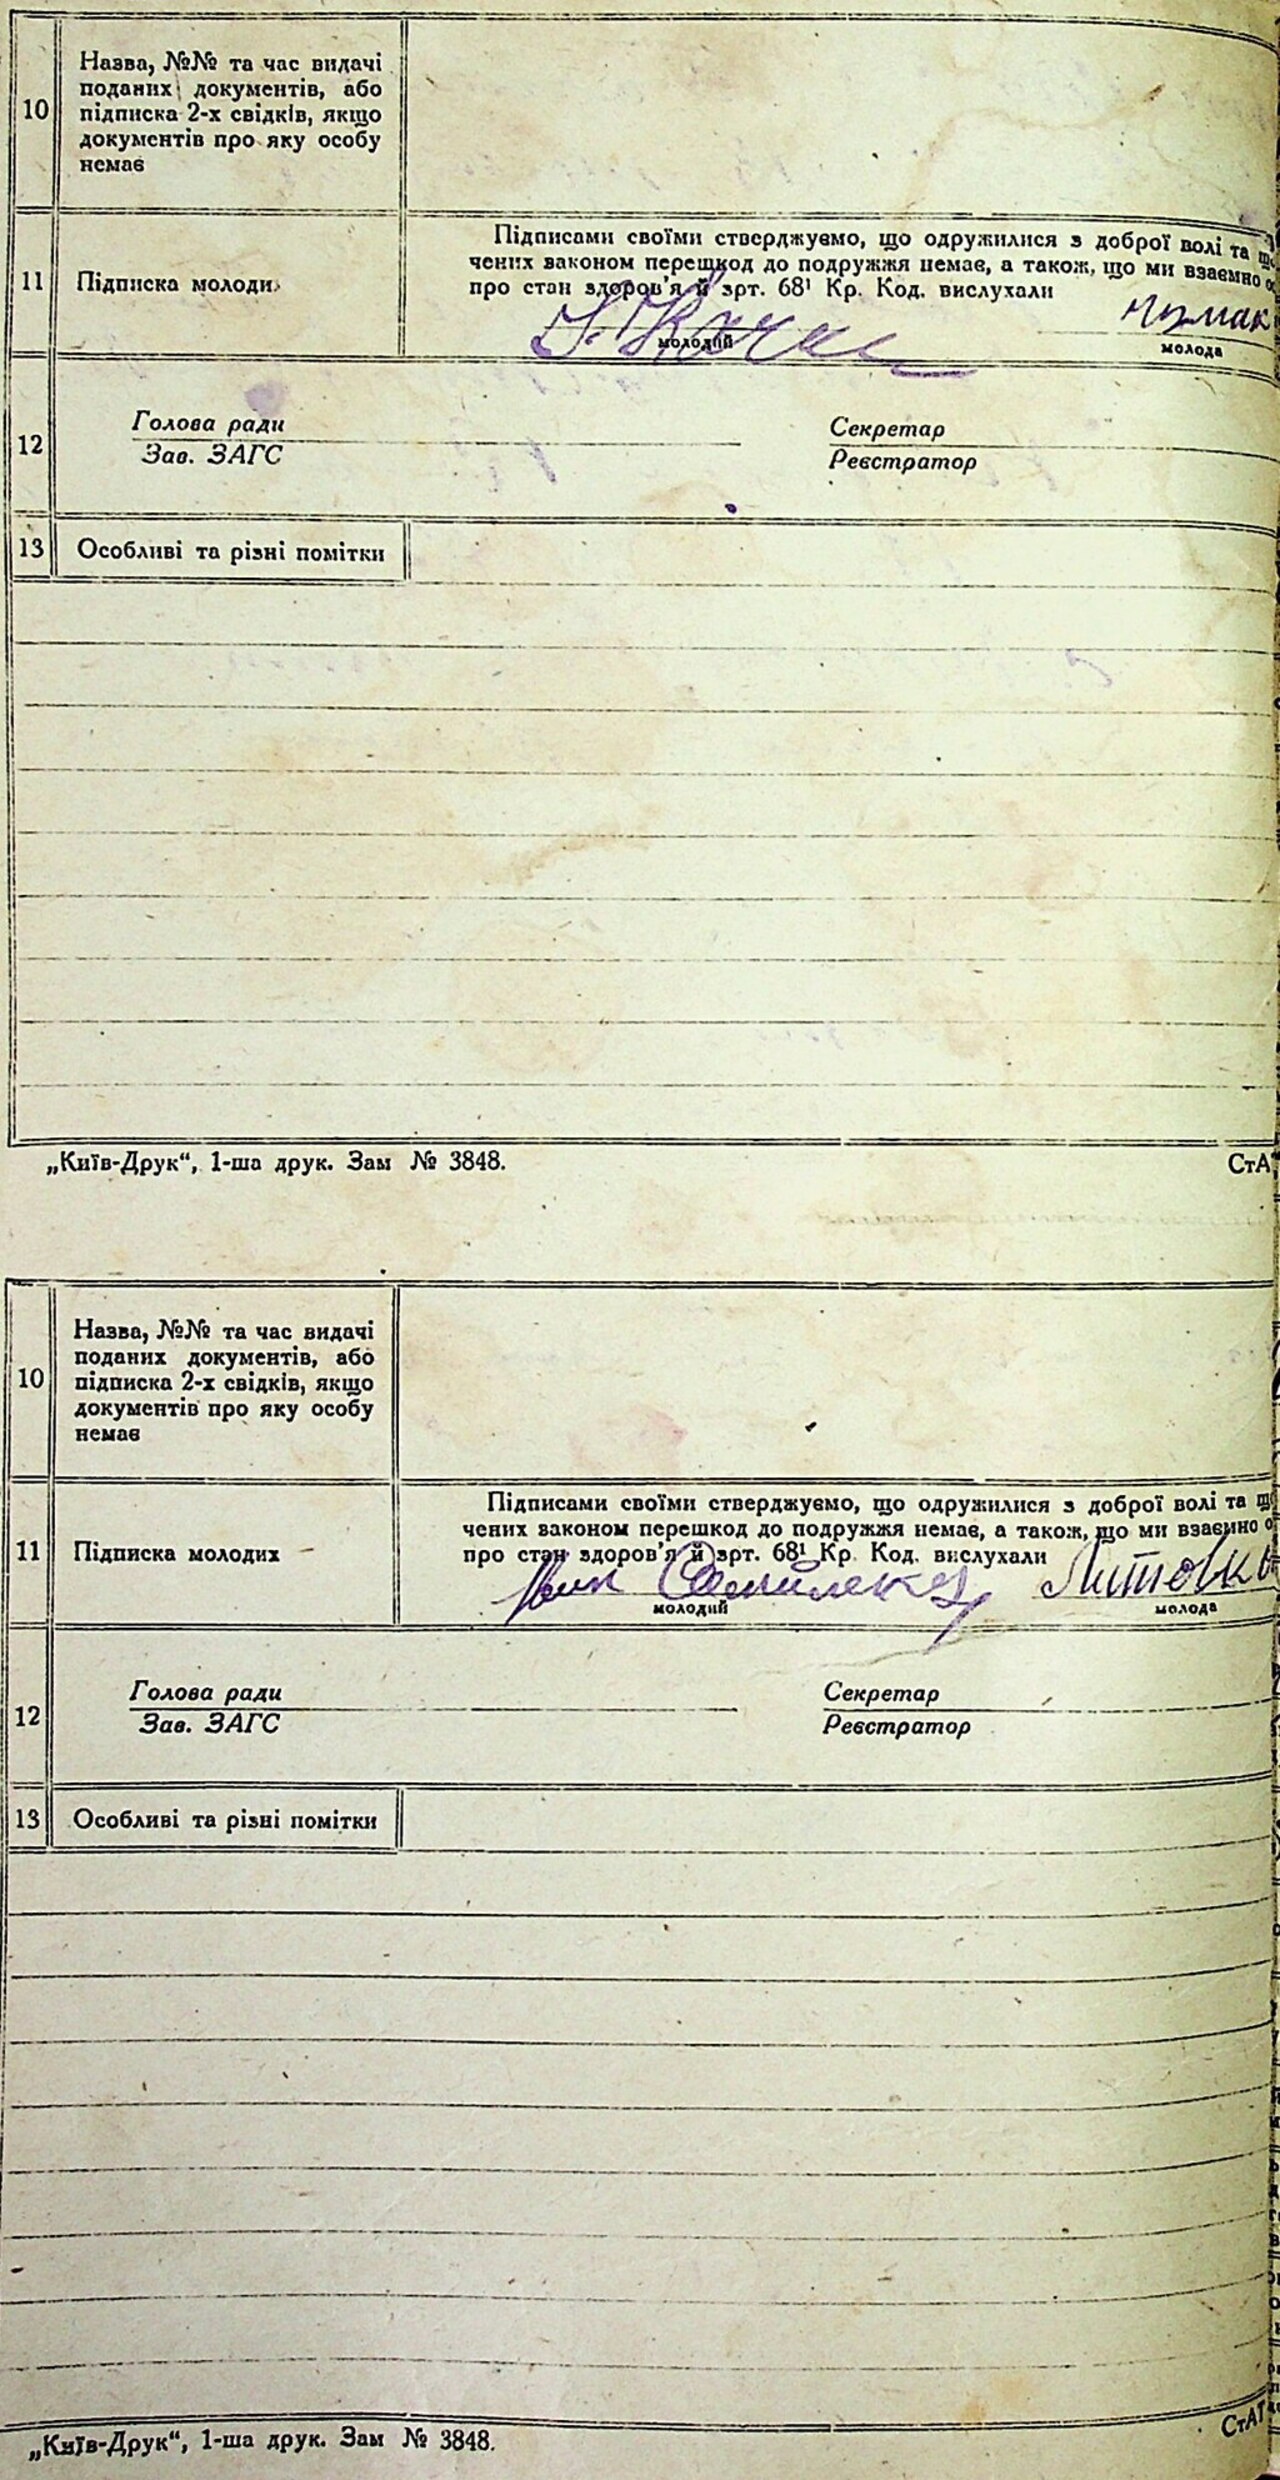 10
Назва, №№ та час видачі
поданих документів, або
підписка 2-х свідків, якщо
документів про яку особу
немає
11
Підписка молоди
Підписами своїми стверджуємо, що одружилися з доброї волі та що
чених законом перешкод до подружжя немає, а також, що ми взаємно о
про стан здоров'я й зрт. 68¹ Кр. Код. вислухали
Чумак
молодий
молода
12
Голова ради
Зав. ЗАГС
Секретар
Реєстратор
13
Особливі та різні помітки
„Київ-Друк“, 1-ша друк. Зам № 3848.
СтА
10
Назва, №№ та час видачі
поданих документів, або
підписка 2-х свідків, якщо
документів про яку особу
немає
11
Підписка молодих
Підписами своїми стверджуємо, що одружилися з доброї волі та що
чених законом перешкод до подружжя немає, а також, що ми взаємно о
про стан здоров'я й зрт. 68¹ Кр. Код. вислухали
молодий
молода
12
Голова ради
Зав. ЗАГС
Секретар
Реєстратор
13
Особливі та різні помітки
„Київ-Друк“, 1-ша друк. Зам № 3848.
СтАТ